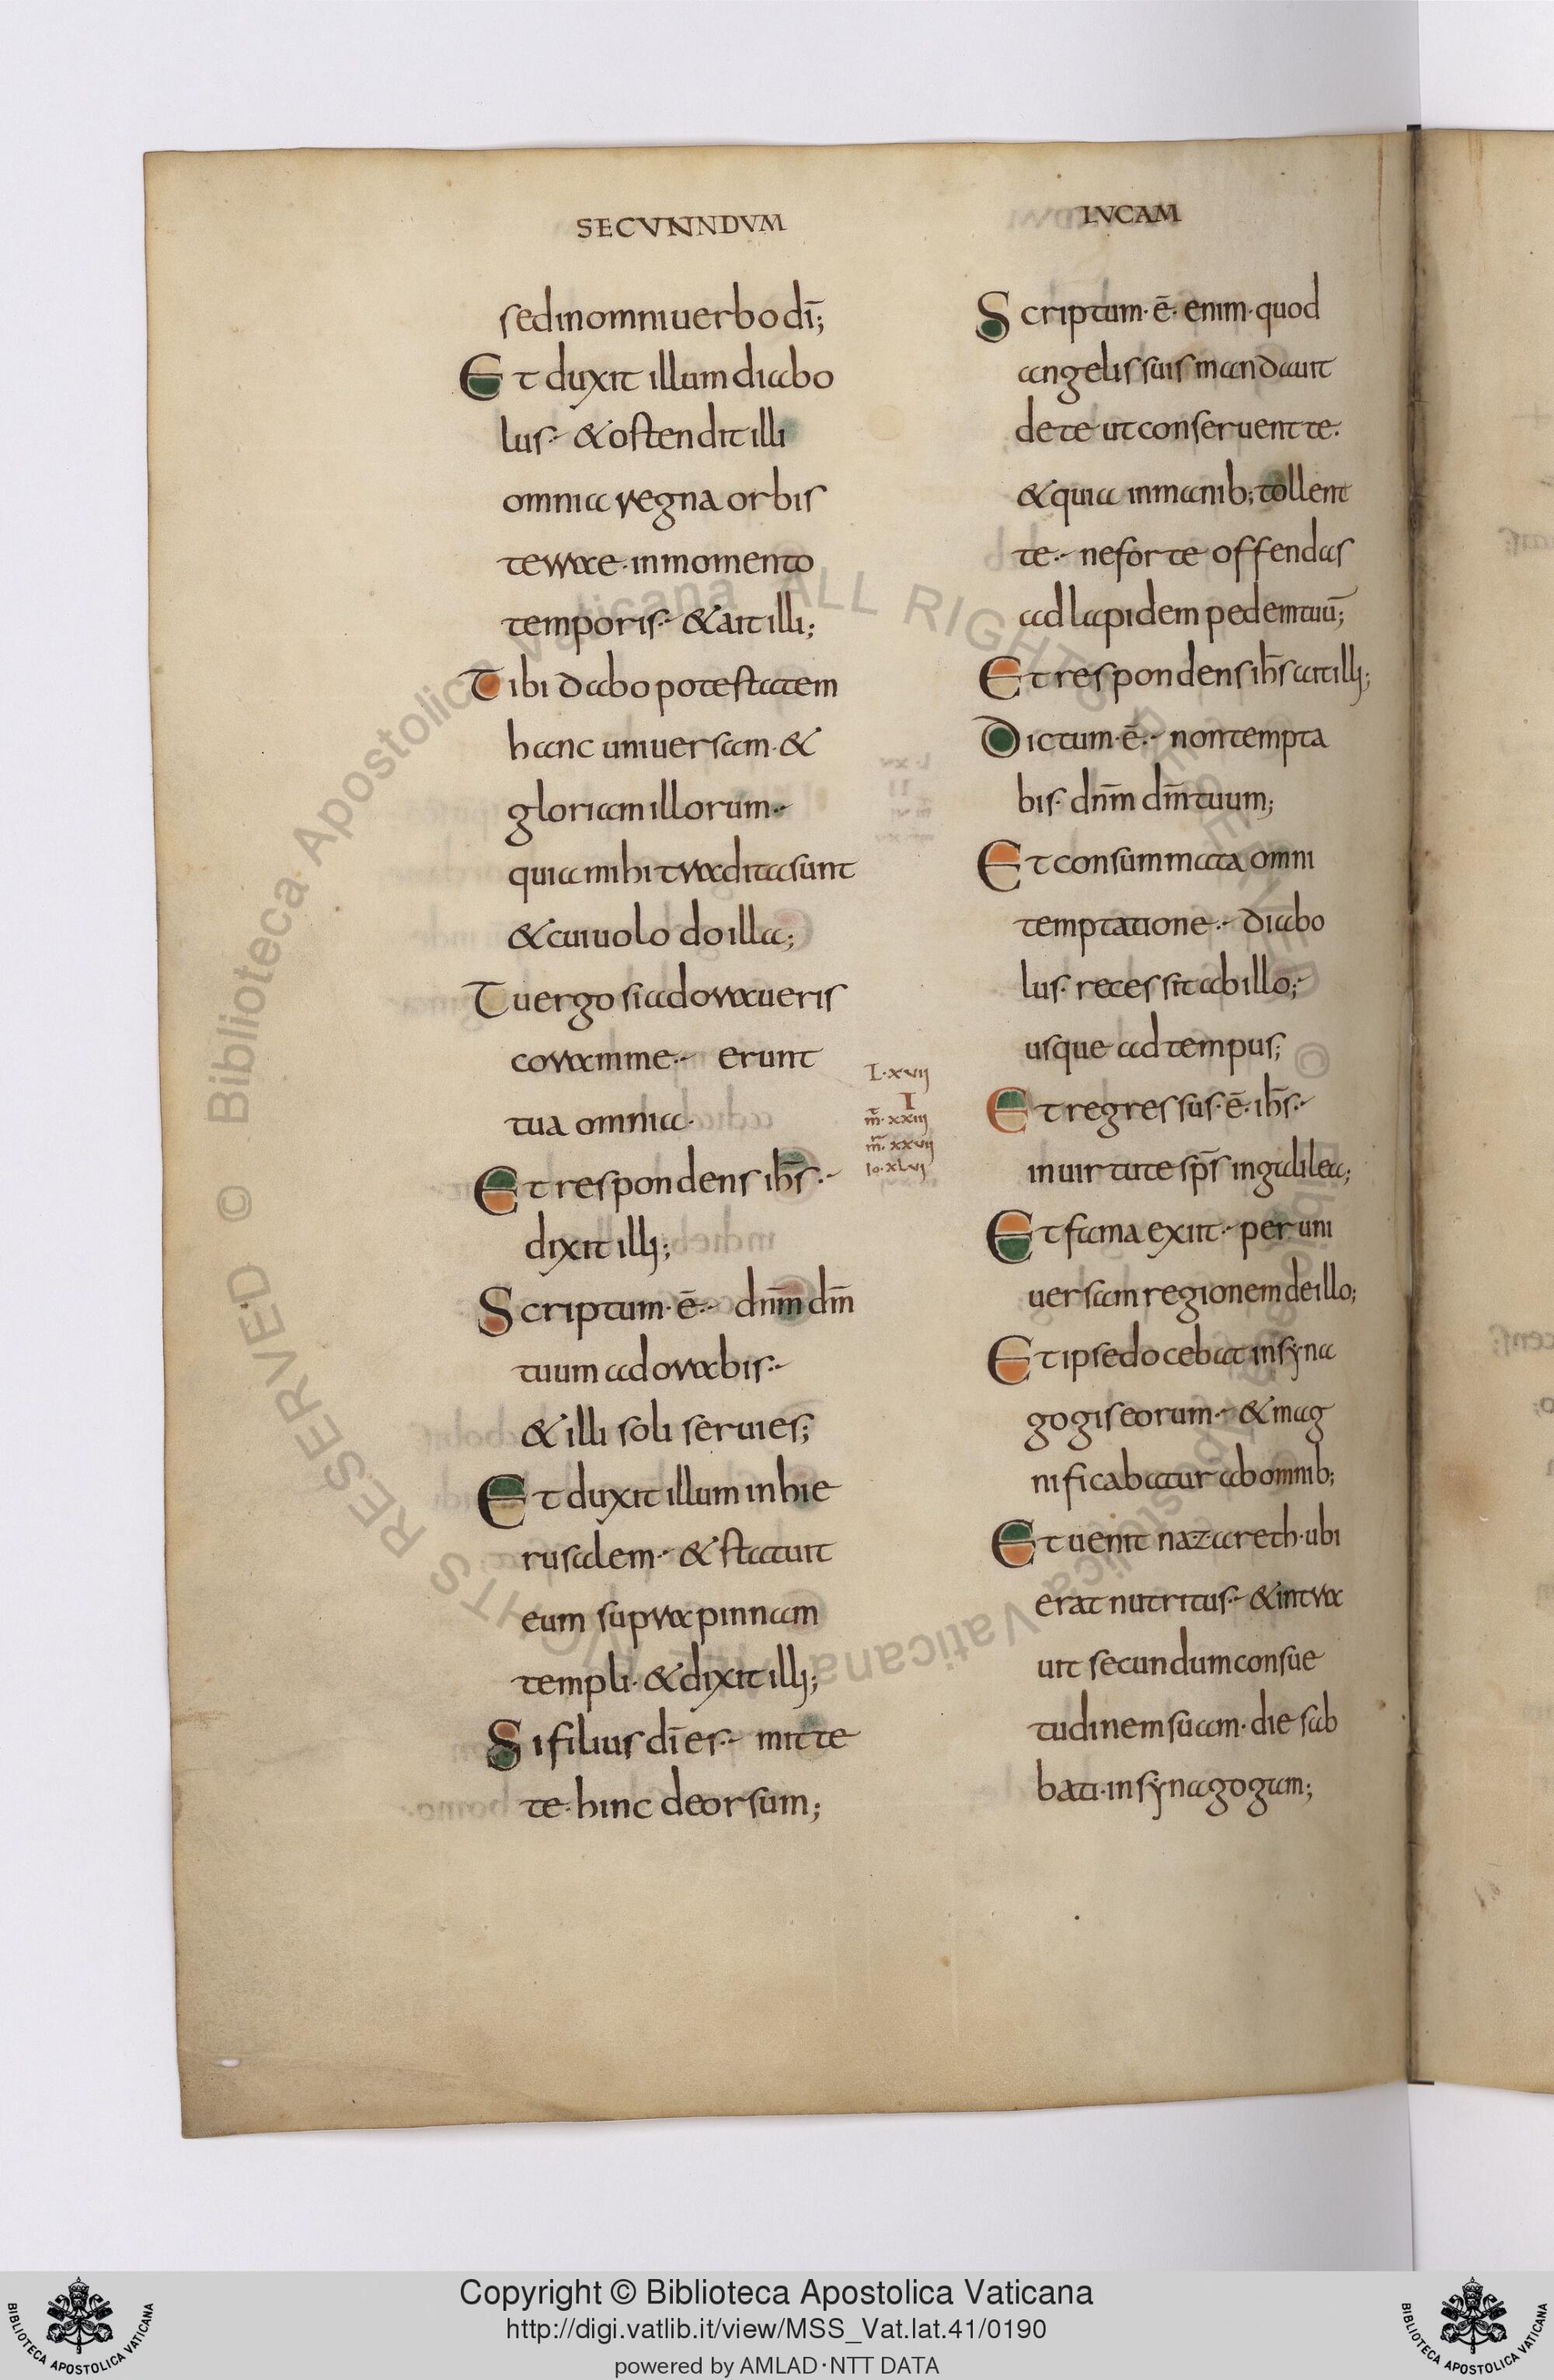 SECUNNDUM
sedinomniuerbo dī;
Et duxit illum diabo
lus· & ostendit illi
omnia regna orbis
terrae· inmomento
temporis· & ait illi;
Tibi dabo potestatem
hanc uniuersam· &
gloriam illorum·
quia mihi tradita sunt
& cui uolo do illa;
Tu ergo si adoraueris
coram me· erunt
tua omnia·
Et respondens ih̄s·
dixit illi;
Scriptum· ē· dnm̄ dm̄
tuum adorabis·
& illi soli seruies;
Et duxit illum in hie
rusalem· & statuit
eum supra pinnam
templi· & dixit illi;
Si filius dī es· mitte
te· hinc deorsum;
L·xvii
I
m̄·xxiii
m̄·xxvii
Io·xlvi
LUCAM
Scriptum· ē· enim· quod
angelis suis mandauit
de te ut conseruent te·
& quia inmanib; tollent
te· ne forte offendas
ad lapidem pedem tuū;
Et respondens ih̄s ait illi;
Dictum· ē· non tempta
bis· dnm̄ dm̄ tuum;
Et consummata omni
temptatione· diabo
lus· recessit ab illo;
usque ad tempus;
Et regressus· ē· ih̄s·
in uirtute sp̄s in galilea;
Et fama exiit· per uni
uersam regionem de illo;
Et ipse docebat in syna
gogis eorum· & mag
nificabatur ab omnib;
Et uenit nazareth· ubi
erat nutritus· & intra
uit secundum consue
tudinem suam· die sab
bati· in synagogam;
Copyright © Biblioteca Apostolica Vaticana
http://digi.vatlib.it/view/MSS_Vat.lat.41/0190
powered by AMLAD·NTT DATA